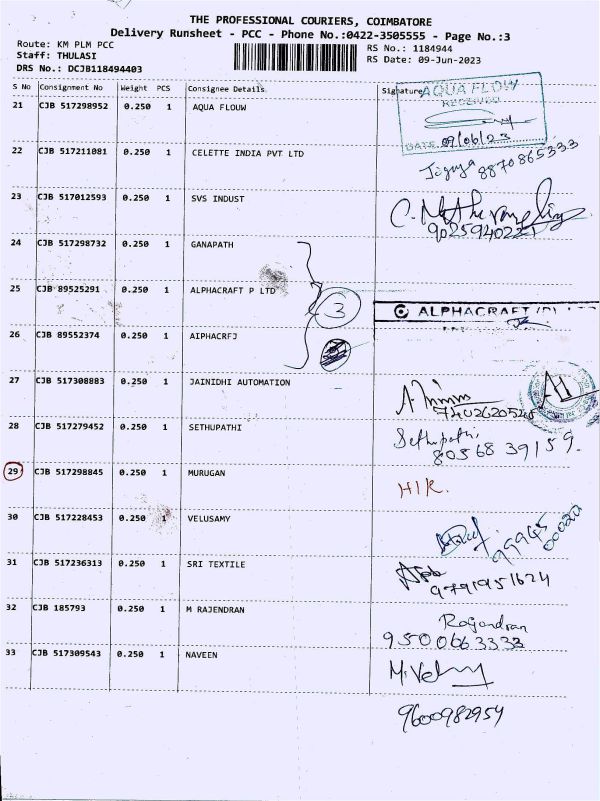 THE PROFESSIONAL COURIERS, COIMBATORE
Delivery Runsheet - PCC - Phone No.:0422-3505555 - Page No.:3
Route: KM PLM PCC RS No.: 1184944
Staff: THULASI RS Date: 09-Jun-2023
DRS No.: DCJB118494403
S No Consignment No Weight PCS Consignee Details Signature
AQUA FLOW
RECEIVED
21 CJB 517298952 0.250 1 AQUA FLOUW
DATE 09/06/23
22 CJB 517211081 0.250 1 CELETTE INDIA PVT LTD
8870865333
23 CJB 517012593 0.250 1 SVS INDUST
9025940221
24 CJB 517298732 0.250 1 GANAPATH
25 CJB 89525291 0.250 1 ALPHACRAFT P LTD
3
ALPHACRAFT (P)
26 CJB 89552374 0.250 1 AIPHACRFJ
27 CJB 517308883 0.250 1 JAINIDHI AUTOMATION
28 CJB 517279452 0.250 1 SETHUPATHI
Sethupathi
80568 39159.
29 CJB 517298845 0.250 1 MURUGAN
H/R.
30 CJB 517228453 0.250 1 VELUSAMY
99945
00020
31 CJB 517236313 0.250 1 SRI TEXTILE
9791951624
32 CJB 185793 0.250 1 M RAJENDRAN
Rajendran
9500663333
33 CJB 517309543 0.250 1 NAVEEN
9600982954